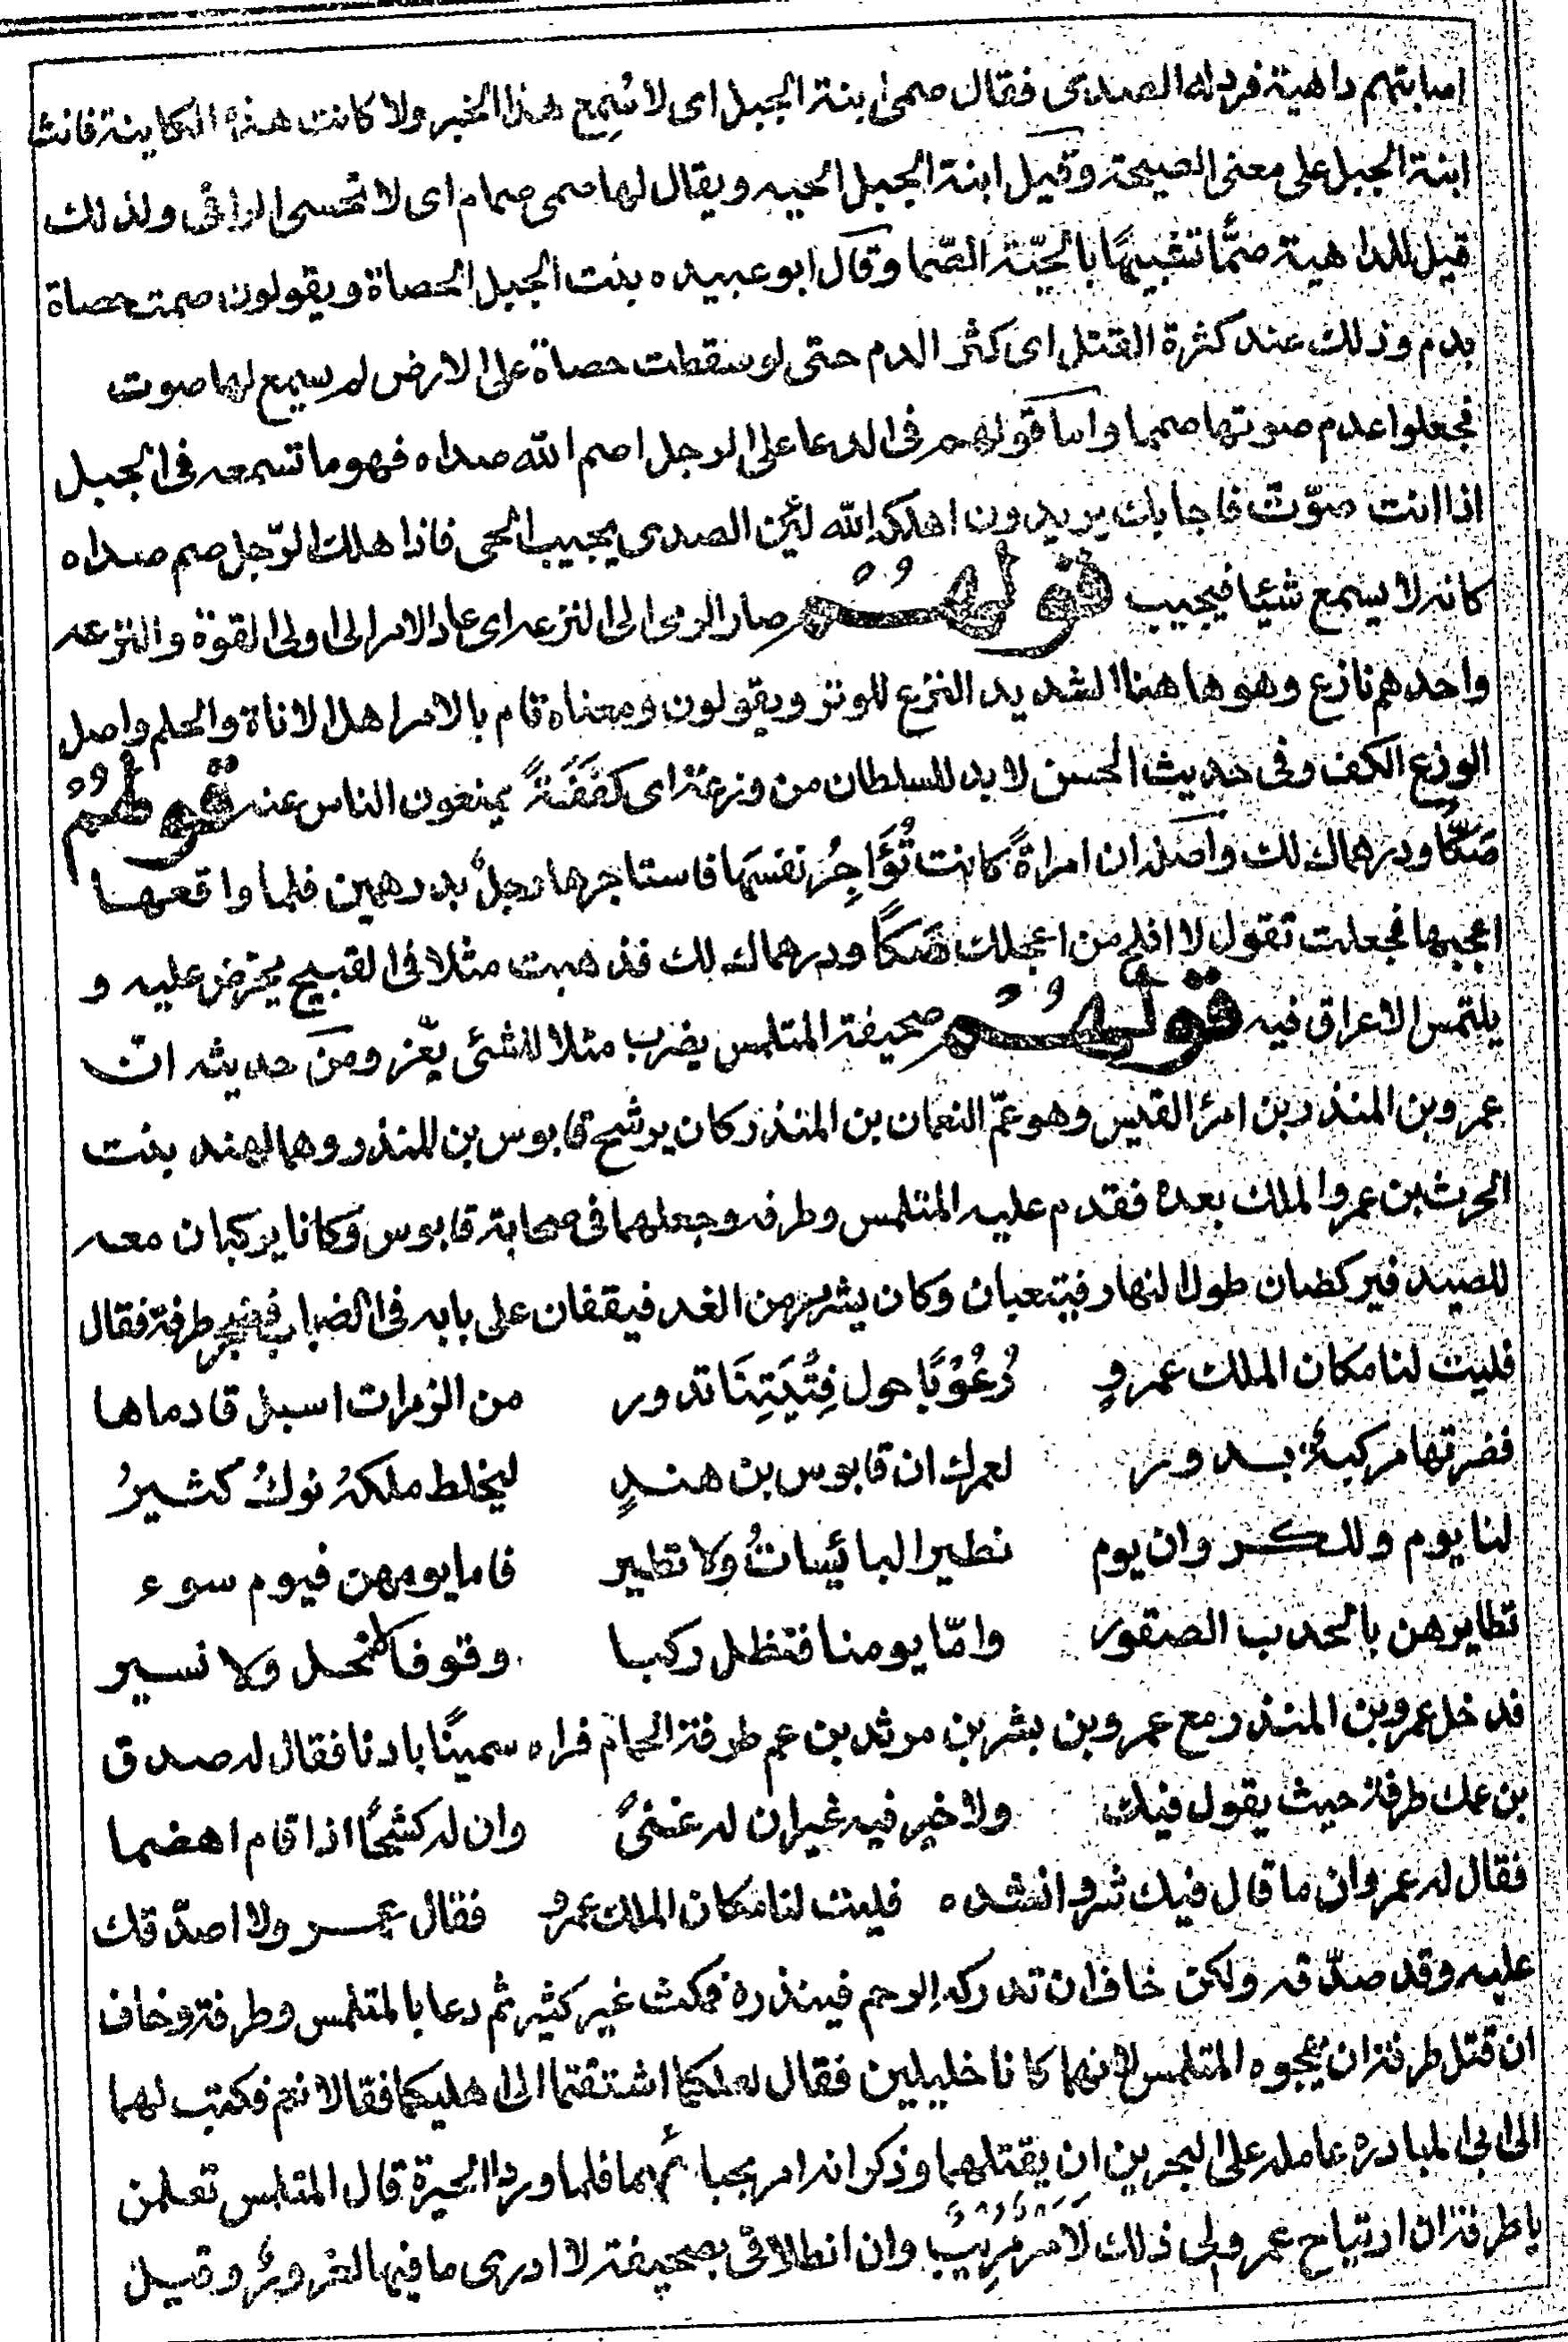 اصابتهم داهية فرد له الصدى فقال صمى ابنة الجبل اى لا سُمِع هذا الخبر ولا كانت هذه الكاينة فانث
ابنة الجبل على معنى الصيحة وقيل ابنة الجبل الحيه ويقال لها صمى صمام اى لا تحسى الراقى ولذلك
قيل للداهية صمَّا تشبيهًا بالحيّة الصّما وقال ابو عبيده بنت الجبل الحصاة ويقولون صمت حصاة
بدم وذلك عند كثرة القتل اى كثر الدم حتى لو سقطت حصاة على الارض لم سيمع لها صوت
فجعلوا عدم صوتها صمما واما قولهم فى الدعا على الرجل اصم الله صداه فهو ما تسمعه فى الجبل
اذا انت صوّتّ فاجابك يريدون اهلكه الله لئن الصدى يجيب الحى فاذا هلك الرّجل صم صداه
كانه لا يسمع شيئا فيجيب قولهُمُ صار الرمى الى النزعه اى عاد الامر الى اولى القوّة والنزعه
واحدهم نازع وهو هاهنا الشديد النزع للوتر ويقولون ومعناه قام بالامر اهل الاناة والحلم واصل
الوزع الكف وفى حديث الحسن لا بد للسلطان من وزعة اى كَفَفَةً يمنعون الناس عنه قولهُمُ
صَكًّا ودرهماك لك واصله ان امراةً كانت تُؤَاجِرُ نفسَها فاستاجرها رجلٌ بدرهمين فلما واقعها
اعجبها فجعلت تقول لا افلح من اعجلك صَكًا ودرهماك لك فذهبت مثلا فى القبيح يحرّض عليه و
يلتمس الاعراق فيه قولهُمُ صحيفة المتلمس يضرب مثلا للشئى يغّر ومن حديثه انّ
عمرو بن المنذر بن امرؤ القيس وهو عمّ النعمان بن المنذر كان يرشح قابوس بن المنذر وهما لهند بنت
الحرث بن عمرو الملك بعده فقدم عليه المتلمس وطرفه وجعلهما فى صحابة قابوس وكانا يركبان معه
للصيد فيركضان طول النهار فيتعبان وكان يشرب من الغد فيقفان على بابه فى الضباب فضجر طرفة فقال
فليت لنا مكان الملك عمروٍ رُعُوْبًا حول فِتْيَتِنَا تدور من الزمرات اسبل قادماها
فضرتها مركبةٌ بدور لعمرك ان قابوس بن هندٍ ليخلط ملكهُ نوكٌ كثيرُ
لنا يوم وللكر وان يوم نطير البائيسَاتُ ولا تطير فاما يومهن فيوم سوء
تطايرهن بالحدب الصقور وامّا يومنا فنظل ركبا وقوفا ما نحل ولا نسير
فدخل عمرو بن المنذر مع عمرو بن بشر بن مرثد بن عم طرفة الحمام فراه سمينًا بادنا فقال له صدق
بن عمك طرفة حيث يقول فيك ولا خير فيه غير ان له غنىً وان له كشحًا اذا قام اهضما
فقال له عمرو ان ما قال فيك شر وانشده فليت لنا مكان الملك عمروٍ فقال عمر ولا اصدّقك
عليه وقد صدّقه ولكن خاف ان تدركه الرحم فينذره فمكث غير كثير ثم دعا بالمتلمس وطرفة وخاف
ان قتل طرفة ان يهجوه المتلمس لانهما كانا خليلين فقال لعلكما اشتقتما الى اهليكما فقالا نعم فكتب لهما
الى ابى المبادره عامله على البحرين ان يقتلهما وذكر انه امر بحبائهما فلما وردا الحيرة قال المتلمس تعلمن
يا طرفة ان ارتياح عمرو لى ذلك لَامَر مُرِيبٌ وان انطلاقى بصحيفة لا ادرى ما فيها لغرورٌ وقيل